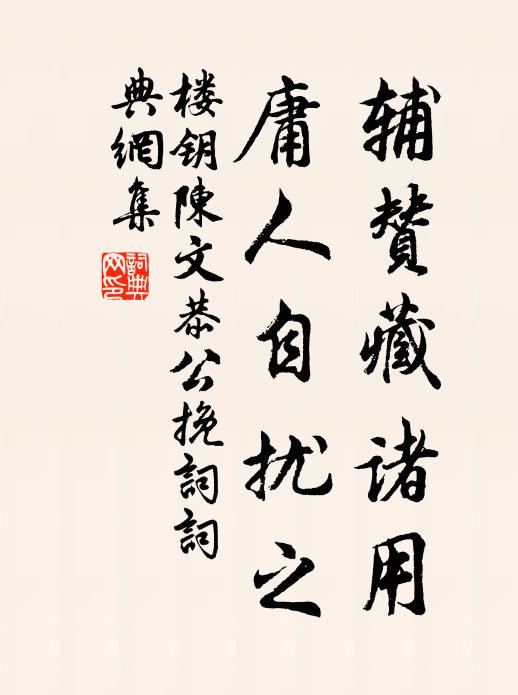 辅赞藏诸用
庸人自扰之
楼钥陳文恭公挽詞詞
典網集
詞典网印